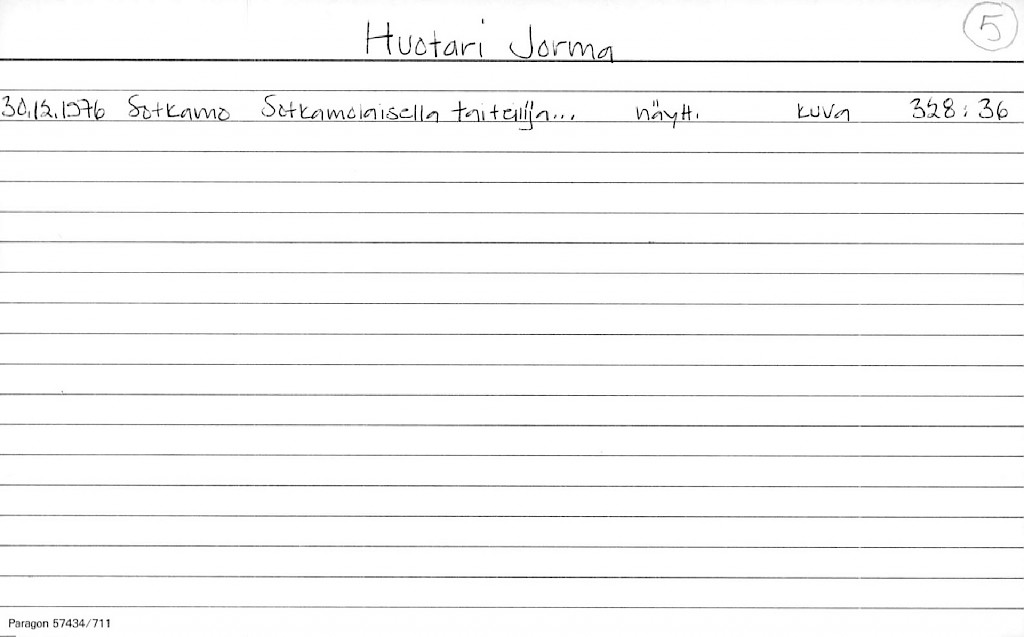 Huotari Jorma 5
30.12.1976 Sotkamo Sotkamolaisella taiteilija... näytt. kuva 328:36
Paragon 57434/711